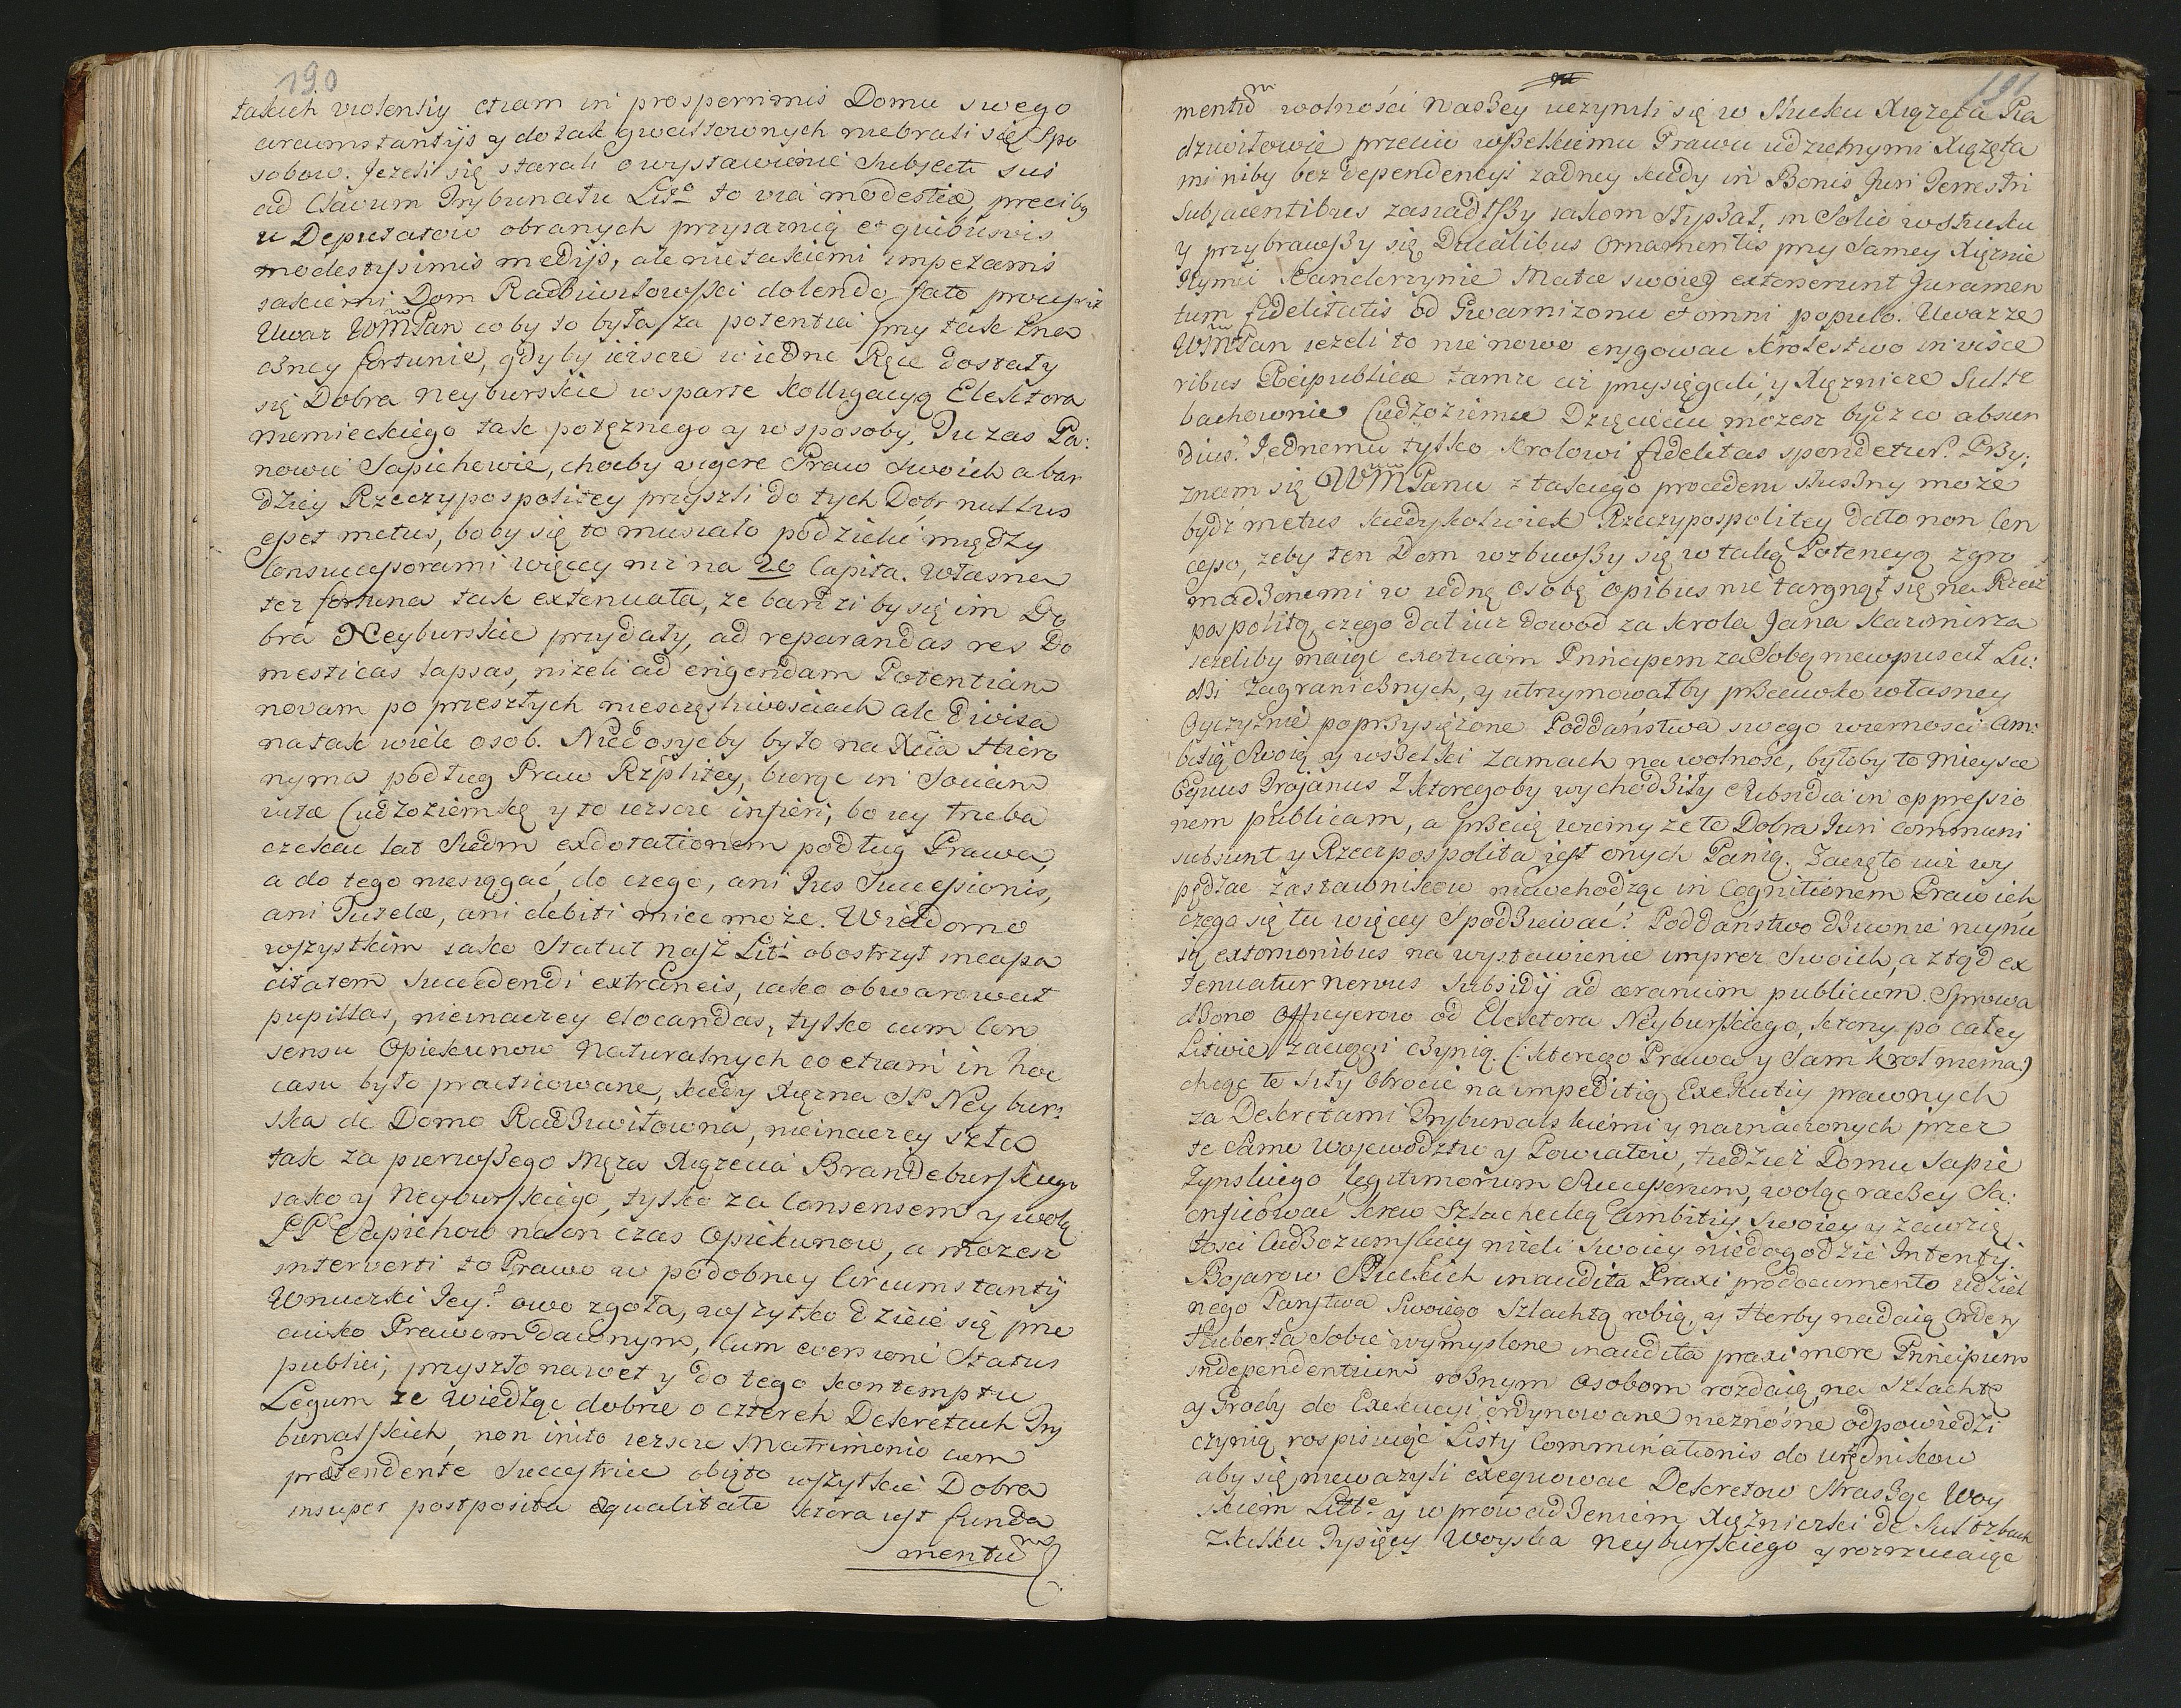 190
takich violentiy etiam in prosperrimis Domu swego
circumstantijs y do tak gwałtownych niebrali się spo
sobow. Jezeli się starali o wystawienie Subjecti sui
ad Clavum Trybunatu Litº to via modestiæ, precibg
u Deputatow obranych przyiaznią et quibusvis
modestyssimis medijs, ale nie takiemi impetami
iakiemi Dom Radziwiłowski dolendo fato
Uwaz WmPan co by to była za potentia przy tak zna
czney fortunie, gdyby ieszcze w iedne Ręce dostały
się Dobra Neyburskie wsparte kolligacyą Elektora
niemieckiego tak potęznego y w sposoby. Tu zas Pa:
nowie Sapiehowie, choćby vigore Praw swoich a bar
dziey Rzeczypospolitey przyszli do tych Dobr nullus
esset metus, bo by się to musiało podzielić między
Consuccessorami więcey niz na 20 Capita. Własna
tez fortuna tak extenuata, ze bardzi by się im Do
bra Neyburskie przydały, ad reparandas res Do
mesticas lapsas, nizeli ad erigendam Potentiam
novam po przeszłych nieszczęśliwościach ale divisa
na tak wiele osob. Niedosyćby było na Xcia Hiero
nyma podług Praw Rzplitey, biorąc in Sociam
vitæ Cudzoziemkę y to ieszcze infieri, bo iey trzeba
czekać lat siedm exdotationem podług Prawa,
a do tego niesiągać, do czego, ani Jus Successionis,
ani Tutelæ, ani debiti miec moze. Wiadomo
wszystkim iako Statut nasz Litt obostrzył incapa
citatem succedendi extraneis, iako obwarował
pupillas, nieinaczey elocandas, tylko cum Con
sensu Opiekunow naturalnych co etiam in hoc
casu było practicowane, kiedy Xięzna SP Neybur:
ska de Domo Radziwiłowna, nieinaczey szła
tak za pierwszego Męza Xiązęcia Brandeburskiego
iako y Neyburskiego, tylko za Consensem y wolą
PP Sapiehow na on czas Opiekunow, a mozesz
interverti to Prawo w podobney Circumstantij
Wnuczki Jey? owo zgoła, wszytko dzieie się prze
ciwko Prawom dawnym, cum eversione Status
publici, przyszło nawet y do tego kontemptu
Legum ze wiedząc dobrze o czterech Dekretach Try
bunalskich, non inito ieszcze Matrimonio cum
prætendente Succestrice obięto wszytkie Dobra
insuper postposita æqualitate ktora iest funda
mentum
191
mentum wolności naszey uczynili się w Słucku Xiązęta Ra
dziwiłowie przeciw wszelkiemu Prawu udzielnymi Xiązęta
mi niby bez dependencyi zadney kiedy in Bonis Juri Terrestri
Subjacentibus zasiadłszy iakom słyszał, in Solio w Słucku
y przybrawszy się Ducalibus Ornamentis przy Samey Xięznie
Jeymci Kanclerzynie Matce swoiey extorserunt Juramen
tum fidelitatis od Gwarnizonu et omni populo. Uwaz ze
WmPan iezeli to nie nowe erygować Krolestwo in visce
ribus Reipublicæ tamze ciz przysięgali y Xięzniczce Sultz
bachownie Cudzoziemce Dziecięciu mozesz bydz co absur
dius? Jednemu tylko Krolowi fidelitas spondetur. Przy:
znam się WmPanu z takiego procederu słuszny moze
bydz metus kiedyzkolwiek Rzeczypospolitey dato non con
cesso, zeby ten Dom wzbiwszy się w taką Potencyą zgro
madzonemi w iedną osobę opibus nie targnął się na Rzecz
pospolitą, czego dał iuz dowod za Krola Jana Kazimirza
iezeliby maiąc exoticam Principem za Sobą niewpuscił Lu:
dzi Zagranicznych, y utrzymowałby przeciwko własney
Oyczyznie poprzysięzone Poddaństwa swego wierności Am:
bitią Swoią y wszelki zamach na wolność, byłoby to mieysce
Equus Trojanus z ktoregoby wychodziły Subsidia in oppressio
nem publicam, a przecię wiemy ze te Dobra Juri Communi
subsunt y Rzeczpospolita iest onych Panią. Zaczęto iuz wy
pędzac zastawnikow niewchodząc in Cognitionem Praw ich
czego się tu więcey Spodziewać? Poddaństwo dziwnie niszczą
się extorsionibus na wystawienie imprez Swoich, a ztąd ex
tenuatur nervus Subsidij ad ærarium publicum. Sprowa
dzono Officyerow od Elektora Neyburskiego, ktorzy po całey
Litwie zaciągi czynią. (: ktorego Prawa y Sam Krol niema:)
chcąc te siły obrocić na impeditią Exekutiy prawnych
za Dekretami Trybunalskiemi y naznaczonych przez
te same Wojewodztw y Powiatow, tudziez Domu Sapie
zynskiego legitimorum Successorum, woląc raczey Sa:
crificować krew Szlachecką ambitiy swoiey y zawzię
tości Cudzoziemskiey nizeli swoiey niedogodzić Intentij.
Bojarow Słuckich inaudita Praxi prodocumento udziel
nego Panstwa Swoiego Szlachtą robią, y Herby nadaią Ordery
Huberta Sobie wymyslone inaudita praxi more Principum
independentium roznym osobom rozdaią, na Szlachtę
y Grody do Exekucyi ordynowane nieznosne odpowiedzi
czynią rospisuiąc Listy Comminationis do urzędnikow
aby się niewazyli exequowac Dekretow strasząc Woy
skiem Litte y wprowadzeniem Xięzniczki de Sultzbach
z kilku Tysięcy Woyska Neyburskiego y rozrzucaiąc